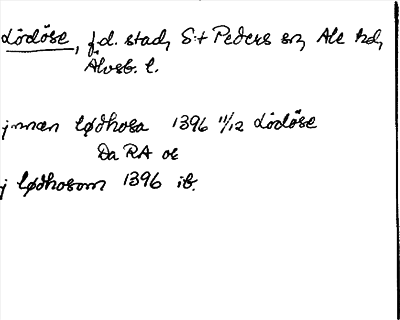 Lödöse, f.d. stad, S:t Peders sn, Ale hd,
Älvsb. l.
jnnan lødhosa 1396 11/12 Lödöse
Da RA or
j lødhosom 1396 ib.